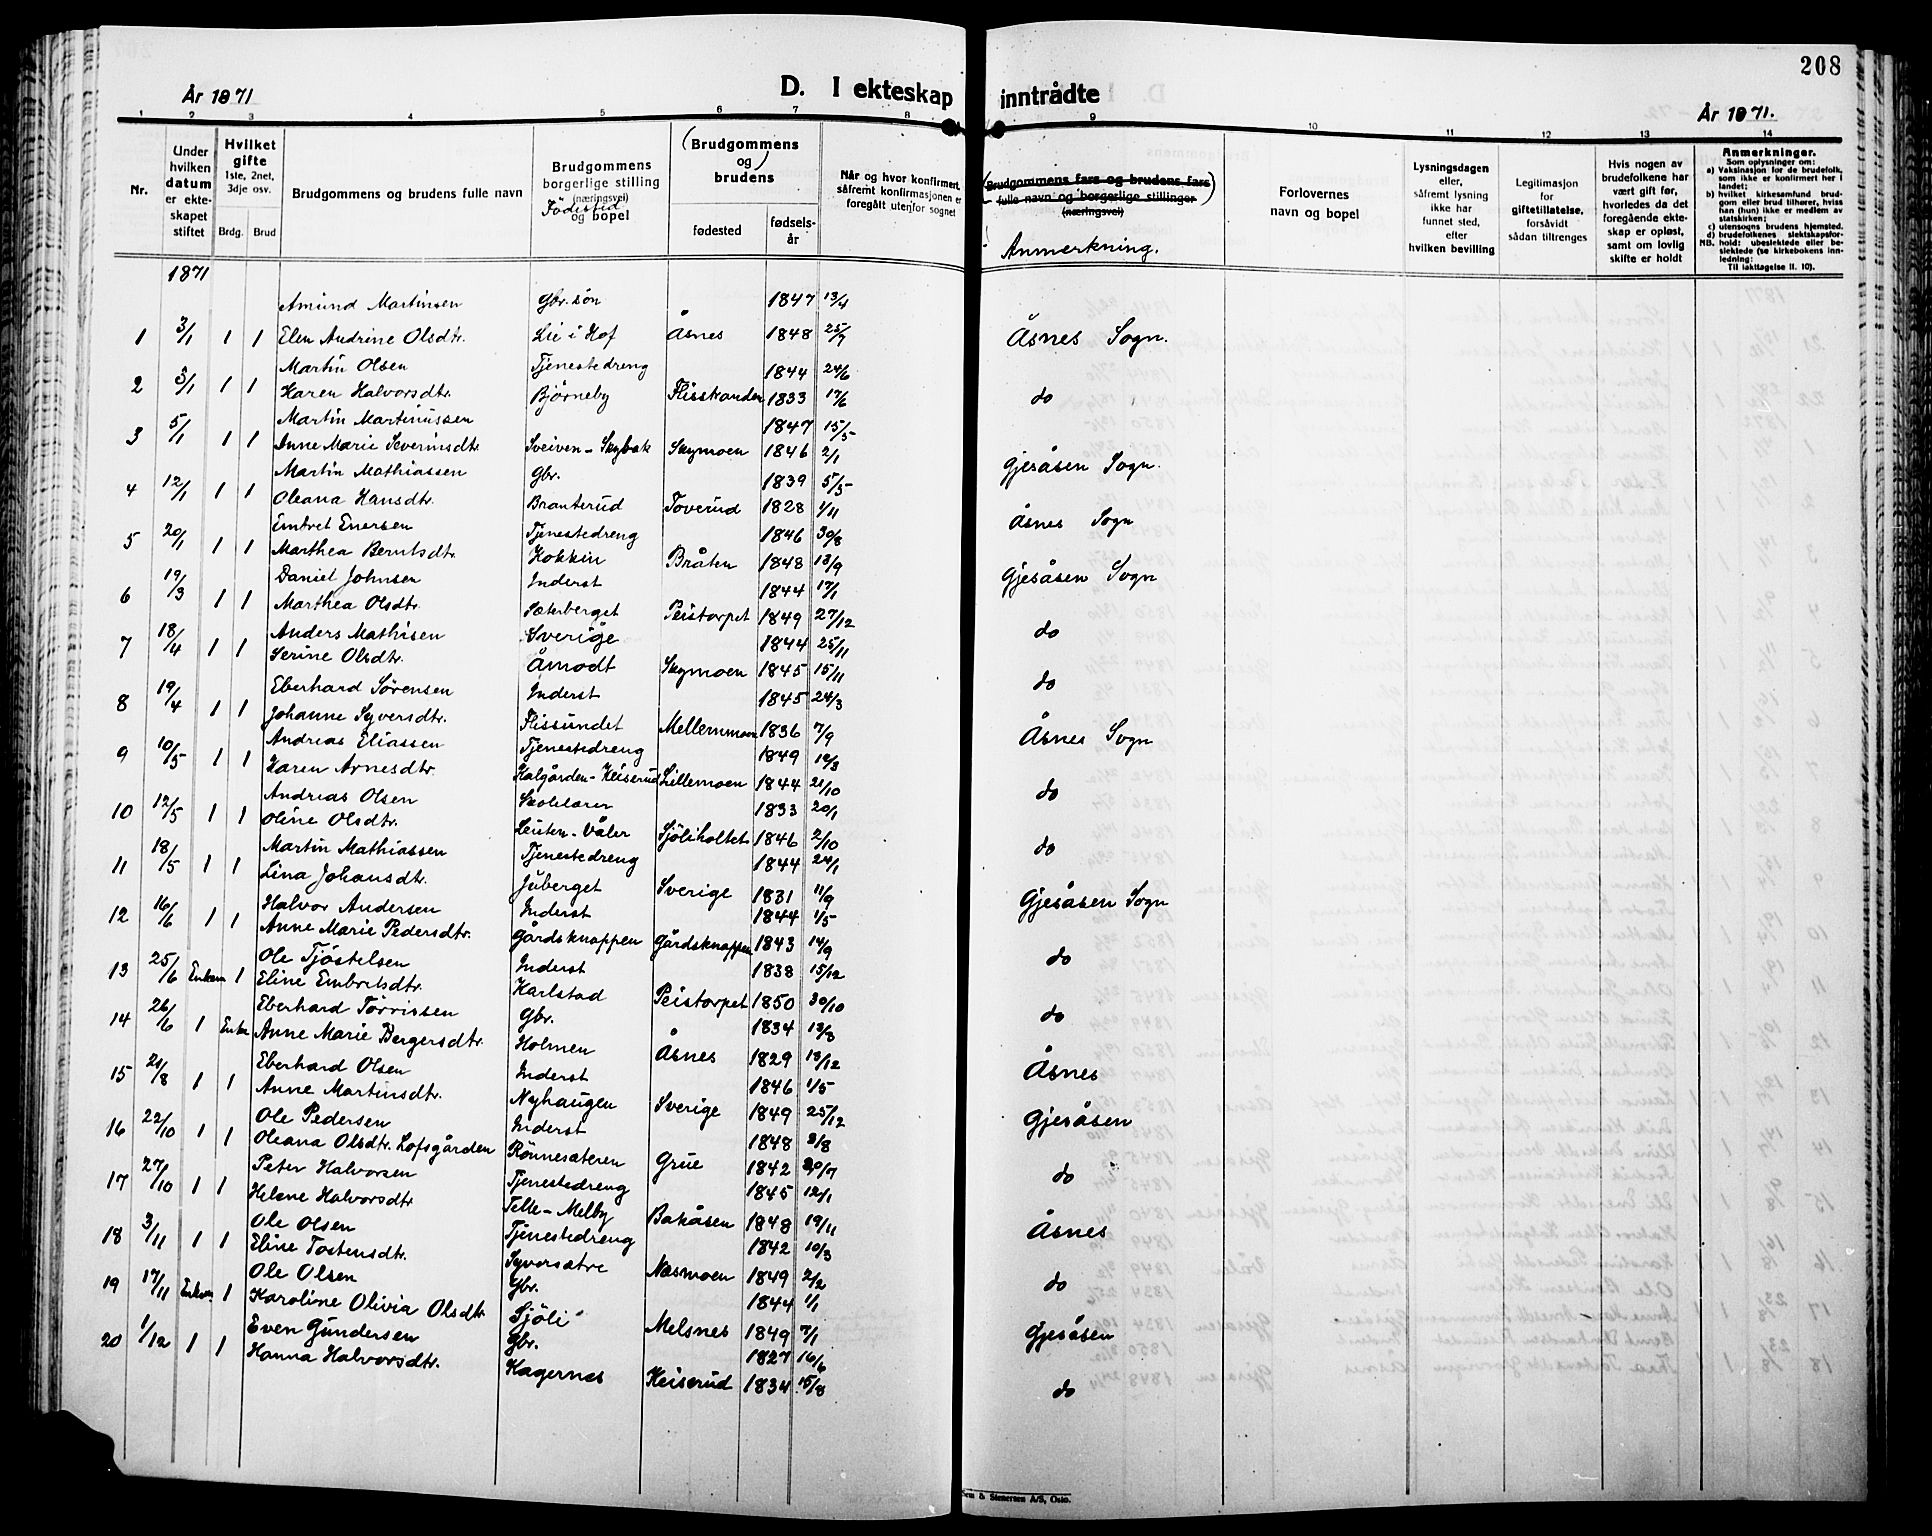 208
År 1871
D. I ekteskap inntrådte
År 1871.
1 2 3 4 5 6 7 8 9 10 11 12 13 14
Nr.
Under hvilken datum er ekteskapet stiftet
Hvilket gifte 1ste, 2net, 3dje osv.
Brdg. Brud
Brudgommens og brudens fulle navn
Brudgommens borgerlige stilling (næringsvei) og bopel
Fødested
(Brudgommens og) brudens
fødested
fødsels-år
Når og hvor konfirmert, såfremt konfirmasjonen er foregått utenfor sognet
(Brudgommens fars og brudens fars fulle navn og borgerlige stillinger (næringsvei))
Anmerkning.
Forlovernes navn og bopel
Lysningsdagen eller, såfremt lysning ikke har funnet sted, efter hvilken bevilling
Legitimasjon for giftetillatelse, forsåvidt sådan tiltrenges
Hvis nogen av brudefolkene har vært gift før, hvorledes da det foregående ekteskap er opløst, samt om lovlig skifte er holdt
Anmerkninger.
Som oplysninger om:
a) Vaksinasjon for de brudefolk, som ikke er konfirmert her i landet;
b) hvilket kirkesamfund brudgom eller brud tilhører, hviss han (hun) ikke er medlem av statskirken;
c) utensogns brudens hjemsted.
d) brudefolkenes slektskapsforhold: ubeslektede eller beslektede (se kirkebokens innledning:
NB.
Til iakttagelse II. 10).
1871
Amund Martinsen Gbr. søn 1847 13/4
1 3/1 1 1 Elen Andrine Olsdtr. Lie i Hof Åsnes 1848 25/9 Åsnes Sogn.
Martin Olsen Tjenestedreng 1844 24/6
2 3/1 1 1 Karen Halvorsdtr. Bjørneby Flisskanden 1833 17/6 do
Martin Martinussen 1847 15/5
3 5/1 1 1 Anne Marie Severinsdtr. Sveiven - Skybak Skymoen 1846 2/1 Gjesåsen Sogn.
Martin Mathiassen Gbr. 1839 5/5
4 12/1 1 1 Oleana Hansdtr. Branterud Toverud 1828 1/11 Åsnes Sogn
Embret Enersen Tjenestedreng 1846 30/8
5 20/1 1 1 Marthea Berntsdtr. Kokkin Bråten 1848 13/9 Gjesåsen Sogn
Daniel Johnsen Inderst 1844 17/1
6 19/3 1 1 Marthea Olsdtr. Sæterberget Peistorpet 1849 27/12 do
Anders Mathisen Sverige 1844 25/11
7 18/4 1 1 Serine Olsdtr. Åmodt Skymoen 1845 15/11 do
Eberhard Sørensen Inderst 1845 24/3
8 19/4 1 1 Johanne Syversdtr. Flissundet Mellemmoen 1836 7/9 Åsnes Sogn
Andreas Eliassen Tjenestedreng 1849
9 10/5 1 1 Karen Arnesdtr. Kalgården - Keiserud Lillemoen 1844 21/10 do
Andreas Olsen Skolelærer 1833 20/1
10 12/5 1 1 Oline Olsdtr. Leisten - Våler Sjöliholtet 1846 2/10 do
Martin Mathiassen Tjenestedreng 1844 24/1
11 18/5 1 1 Lina Johansdtr. Juberget Sverige 1831 11/9 Gjesåsen Sogn
Halvor Andersen Inderst 1844 1/5
12 16/6 1 1 Anne Marie Pedersdtr. Gårdsknappen Gårdsknappen 1843 14/9 do
Ole Tjöstelsen Inderst 1838 15/12
13 25/6 Enkem 1 Eline Embretsdtr. Karlstad Peistorpet 1850 30/10 do
Eberhard Törrissen Gbr. 1834 13/8
14 26/6 1 Enke Anne Marie Bergersdtr. Holmen Åsnes 1829 18/12 Åsnes
Eberhard Olsen Inderst 1846 1/5
15 21/8 1 1 Anne Martinsdtr. Nyhaugen Sverige 1849 25/12 Gjesåsen
Ole Pedersen Inderst 1848 3/8
16 22/10 1 1 Oleana Olsdtr. Lofsgården Rönnesæteren Grue 1842 20/7 do
Peter Halvorsen Tjenestedreng 1845 12/1
17 27/10 1 1 Helene Halvorsdtr. Telle - Melby Bakåsen 1848 19/11 Åsnes
Ole Olsen Tjenestedreng 1842 10/3
18 3/11 1 1 Eline Tostensdtr. Syversætre Næsmoen 1849 2/2 do
Ole Olsen Gbr. 1844 1/1
19 17/11 Enkem 1 Karoline Olivia Olsdtr. Sjöli Melsnes 1849 7/1 Gjesåsen
Even Gundersen Gbr. 1827 16/6
20 1/12 1 1 Hanna Halvorsdtr. Hagernes Keiserud 1834 15/8 do
Sem & Stenersen A/S, Oslo.